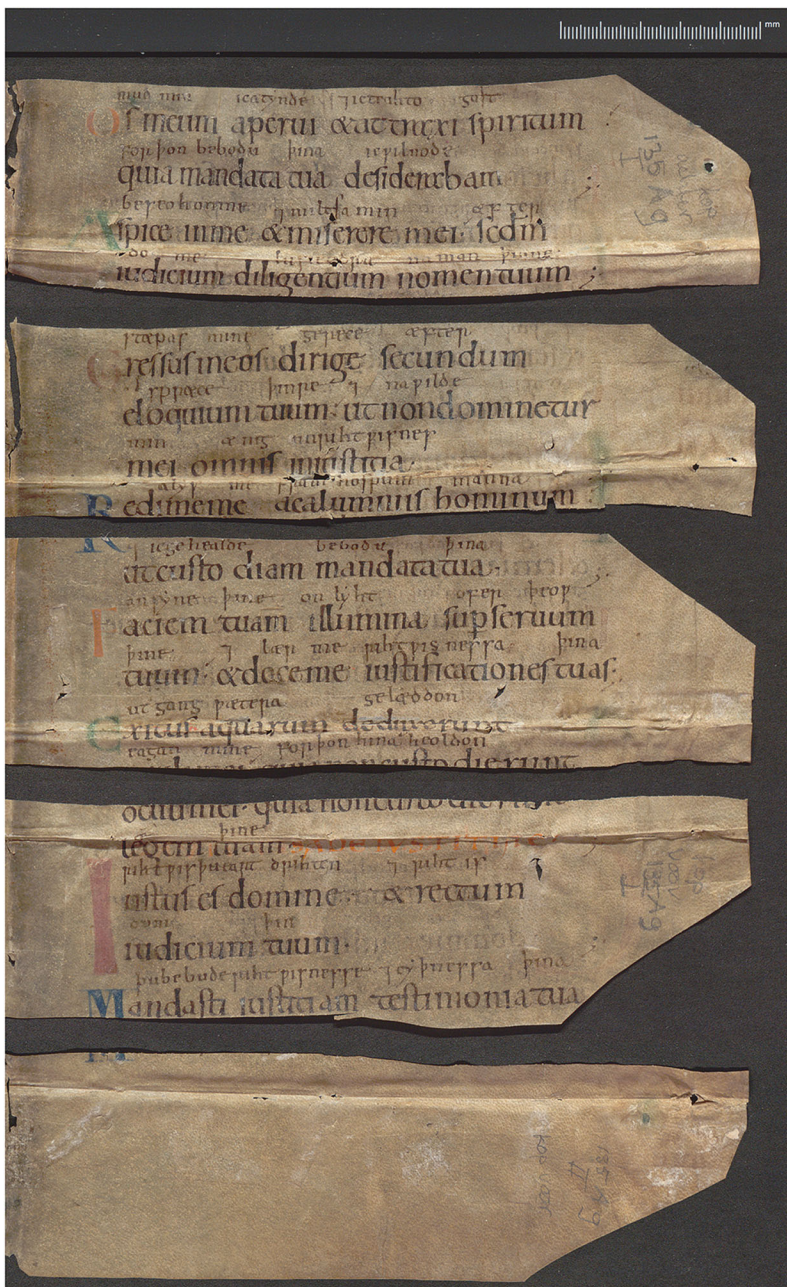 mm
muð min icatynde ⁊ gast
Os meum aperui & attraxi spiritum
forþon bebodu þina
quia mandata tua desiderabam ;
⁊ miltsa min æfter
Aspice in me & miserere mei sedm
do me naman þinne
iudicium diligentium nomen tuum ;
stæpas mine gerece æfter
Gressus meos dirige secundum
spræce þinre ⁊ na
eloquium tuum: ut non dominetur
min ænig unrihtƿisnes
mei omnis iniustitia.
alys me manna
Redime me a calumniis hominum
⁊ icgehealde bebodu þina
ut custodiam mandata tua.
ansyne þine onlyht ofer þeoƿ
Faciem tuam illumina sup seruum
þine ⁊ lær me rihtƿisnessa þina
tuum: & doce me iustificationes tuas:
utgang ƿætera gelæddon
Exitus aquarum deduxerunt
eagan mine forþon hi na heoldon
oculi mei. quia non custodierunt
þine
legem tuam
rihtƿis þu eart drihten ⁊ riht is
Iustus es domine. & rectum
dom þin
iudicium tuum.
þu bebude rihtƿisnesse ⁊ cyþnessa þina
Mandasti iustitiam testimonia tua
135 Ag
I
135 Ag
I
135 Ag
II